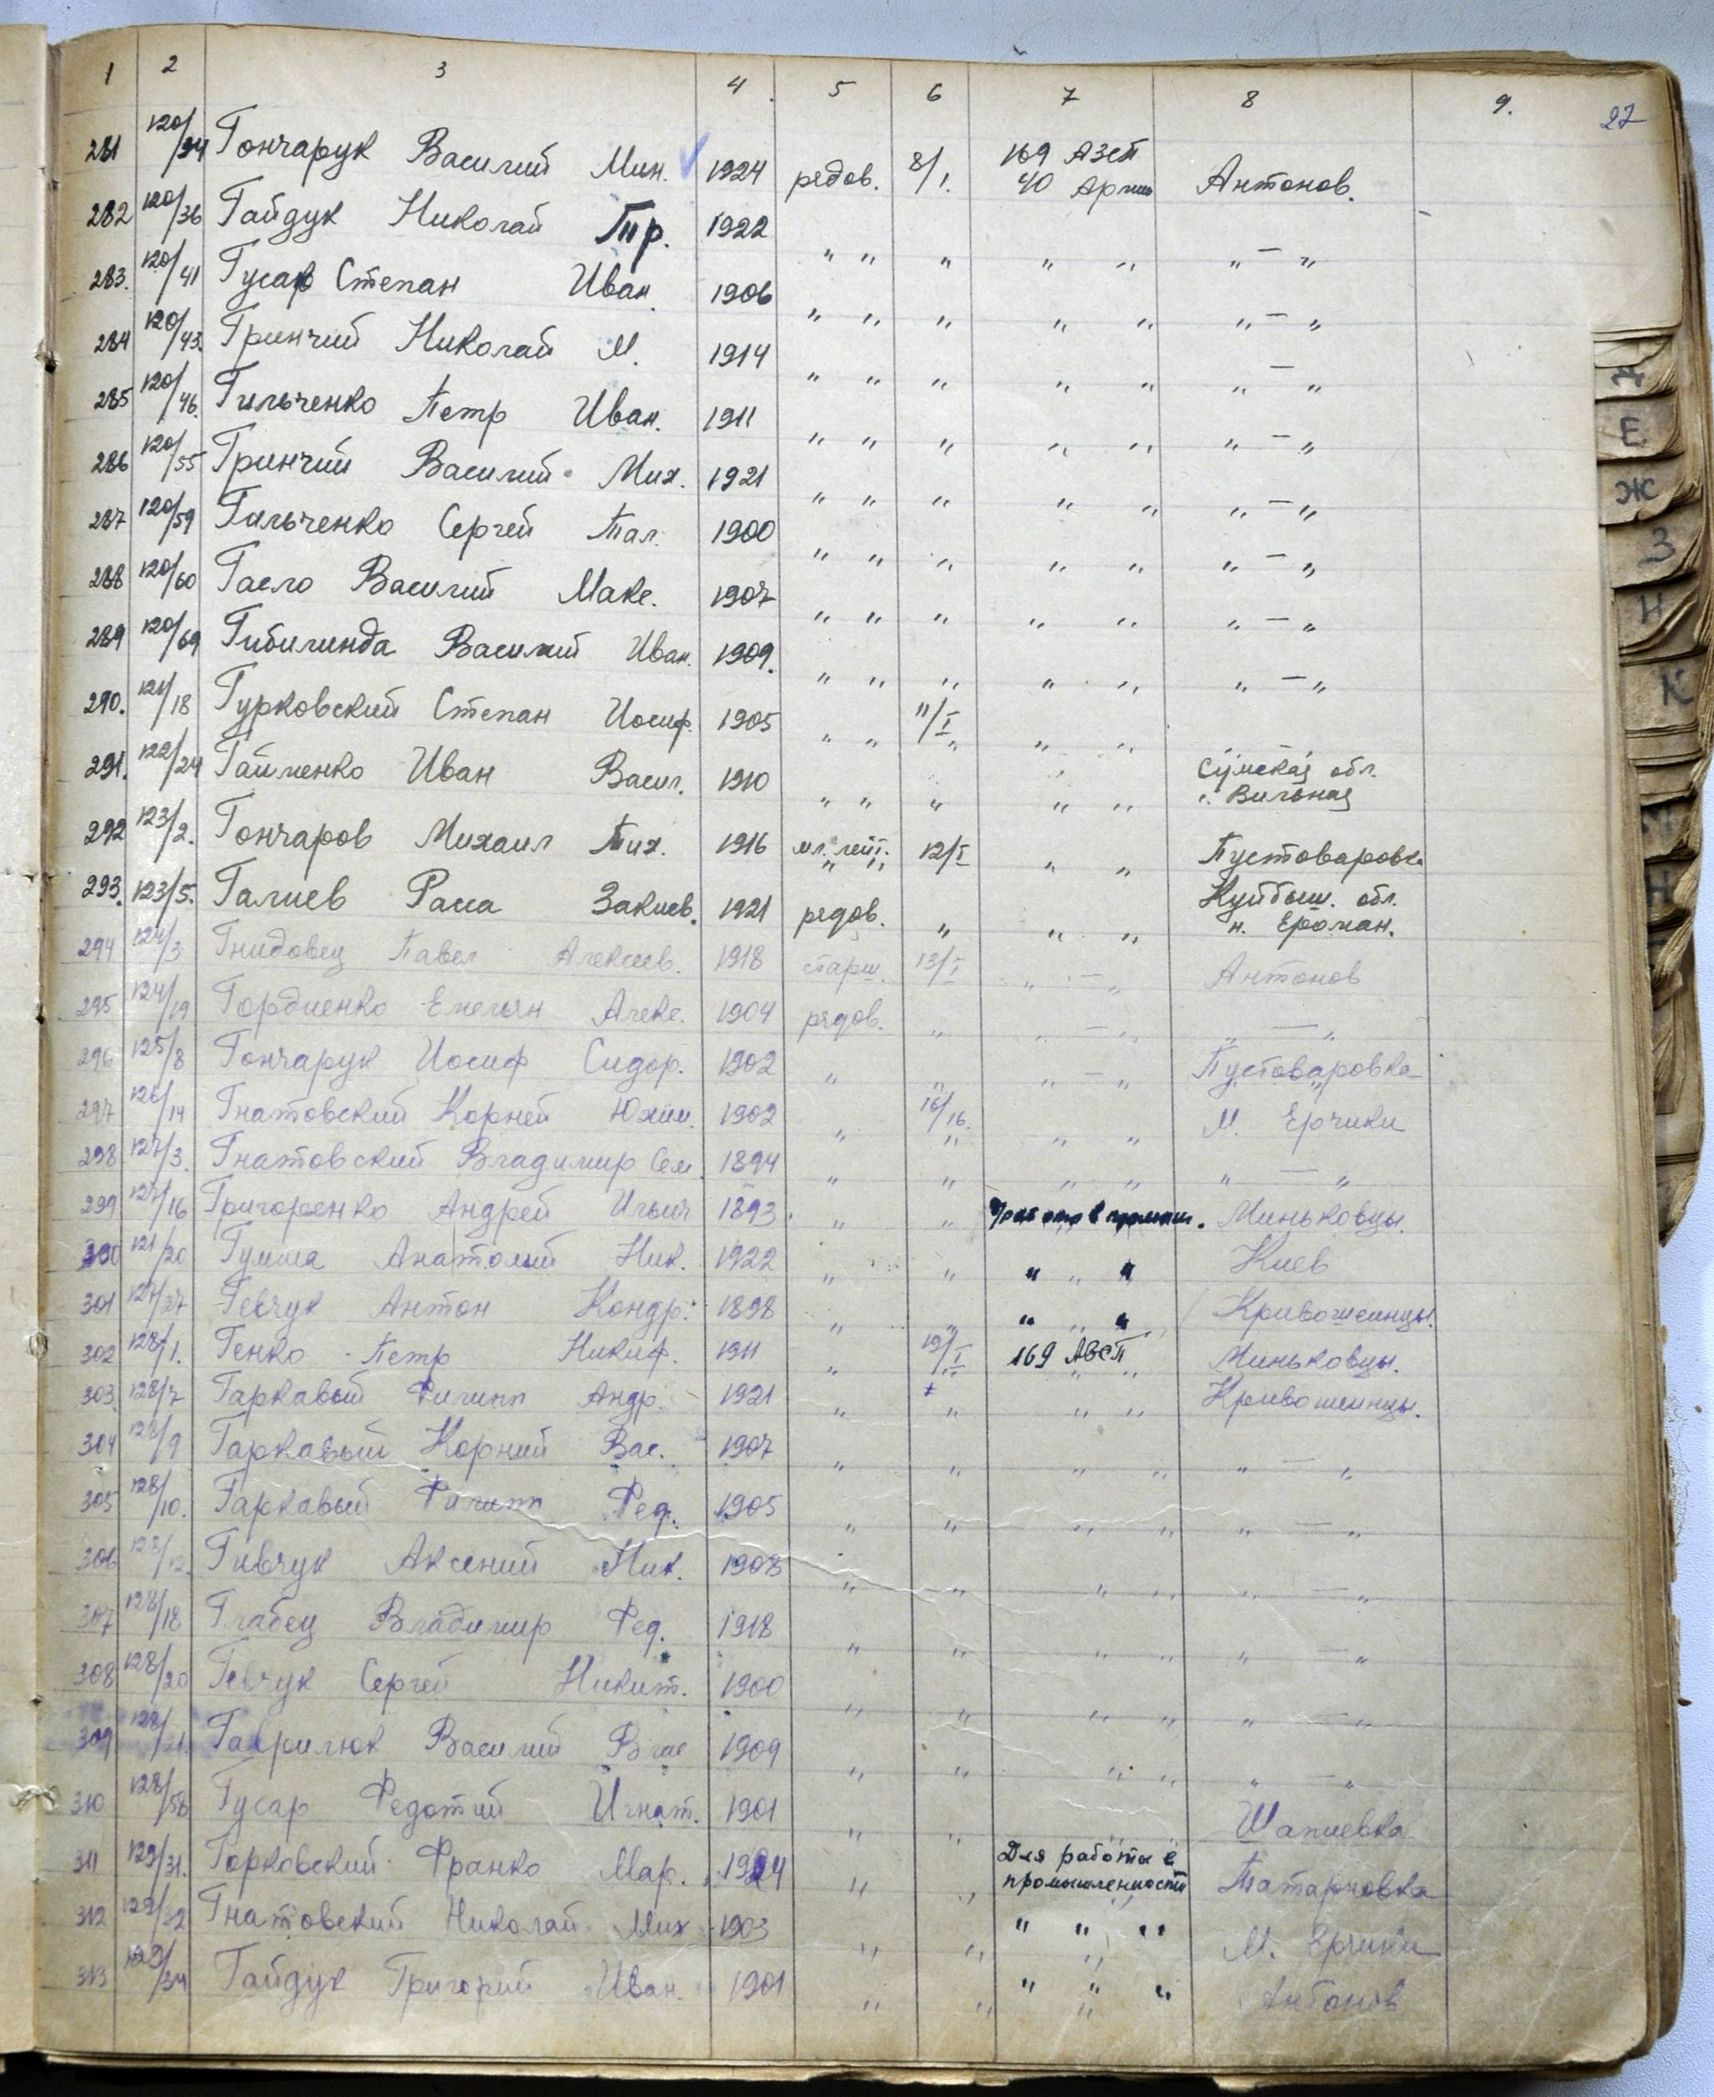 1 2 3 4 5 6 7 8 9. 27
281 120/34 Гончарук Василий Мин. 1924 рядов. 8/I. 169 АЗСП 40 Армии Антонов.
282 120/36 Гайдук Николай Пр. 1922 „ „ „ „ „ „ — „
283. 120/41 Гусар Степан Иван. 1906 „ „ „ „ „ „ — „
284 120/43. Гринчий Николай М. 1914 „ „ „ „ „ „ — „
285 120/46. Гильченко Петр Иван. 1911 „ „ „ „ „ „ — „
286 120/55 Гринчий Василий Мих. 1921 „ „ „ „ „ „ — „
287 120/59 Гильченко Сергей Пал. 1900 „ „ „ „ „ „ — „
288 120/60 Гасло Василий Макс. 1907 „ „ „ „ „ „ — „
289 120/69 Гибилинда Василий Иван. 1909. „ „ „ „ „ „ — „
290. 121/18 Гурковский Степан Иосиф. 1905 „ „ 11/I „ „
291. 122/24 Гайленко Иван Васил. 1910 „ „ „ „ „ Сумская обл. с. Вильная
292 123/2. Гончаров Михаил Тих. 1916 мл. лейт. 12/I „ „ Пустоваровка
293. 123/5. Галиев Раса Закиев. 1921 рядов. „ „ „ Куйбыш. обл. н.
294 124/3 Гнидовец Павел Алексеев. 1918 старш. 13/I „ — „ Антонов
295 124/19 Гордиенко Емельян Алекс. 1904 рядов. „ „ — „ „ — „
296 125/8 Гончарук Иосиф Сидор. 1902 „ „ „ — „ Пустоваровка
297 126/14 Гнатовский Корней Юхим. 1902 „ 16/16. „ „ М. Ерчики
298 127/3. Гнатовский Владимир Сем. 1894 „ „ „ „ „ — „
299 127/16 Григоренко Андрей Ильич 1893. „ „ Миньковцы.
300 121/20 Гумма Анатолий Ник. 1922 „ „ „ „ „ Киев
301 127/37 Гевчук Антон Кондр. 1898 „ „ „ „ „ Кривошеинцы.
302 128/1. Генко Петр Никиф. 1911 „ 19/I 169 АЗСП Миньковцы.
303. 128/7 Гаркавый Филипп Андр. 1921 „ „ „ „ Кривошеинцы.
304 128/9 Гаркавый Корний Вас. 1907 „ „ „ „ „ — „
305 128/10. Гаркавый Филипп Фед. 1905 „ „ „ „ „ — „
306 128/12. Гивчук Аксений Ник. 1908 „ „ „ „ „ — „
307 128/18 Глабец Владимир Фед. 1918 „ „ „ „ „ — „
308 128/20 Гевчук Сергей Никит. 1900 „ „ „ „ „ — „
309 128/21. Гаврилюк Василий Влас 1909 „ „ „ „ „ — „
310 128/58 Гусар Федотий Игнат. 1901 „ „ „ „ Шапиевка
311 129/31. Горковский Франко Мар. 1924 „ „ Для работы в промышленности Татариовка
312 129/32 Гнатовский Николай Мих 1903 „ „ „ „ „ М. Ерчики
313 129/34 Гайдук Григорий Иван. 1901 „ „ „ „ „ Антонов
Д
Е
Ж
З
И
К
Н